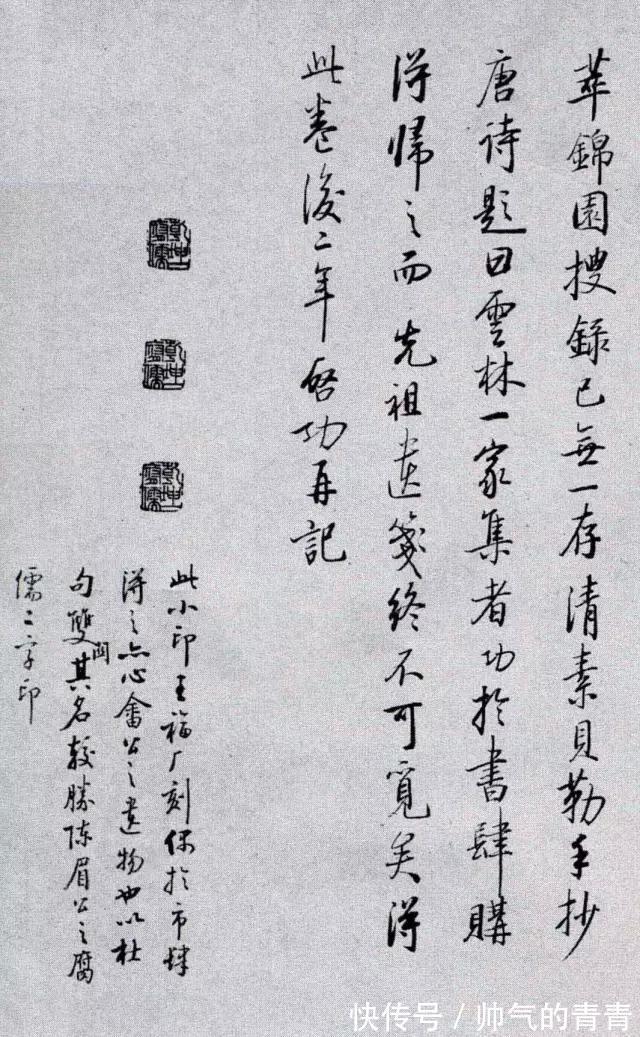 萃錦園搜錄已無一存清素貝勒手抄
唐詩題曰雲林一家集者功於書肆購
得歸之而先祖遺箋終不可覓矣得
此卷後二年啓功再記
此小印王福厂刻偶於市肆
得之亦心畬公之遺物也以杜
句雙関其名較勝陳眉公之腐
儒二字印
快传号 / 帅气的青青